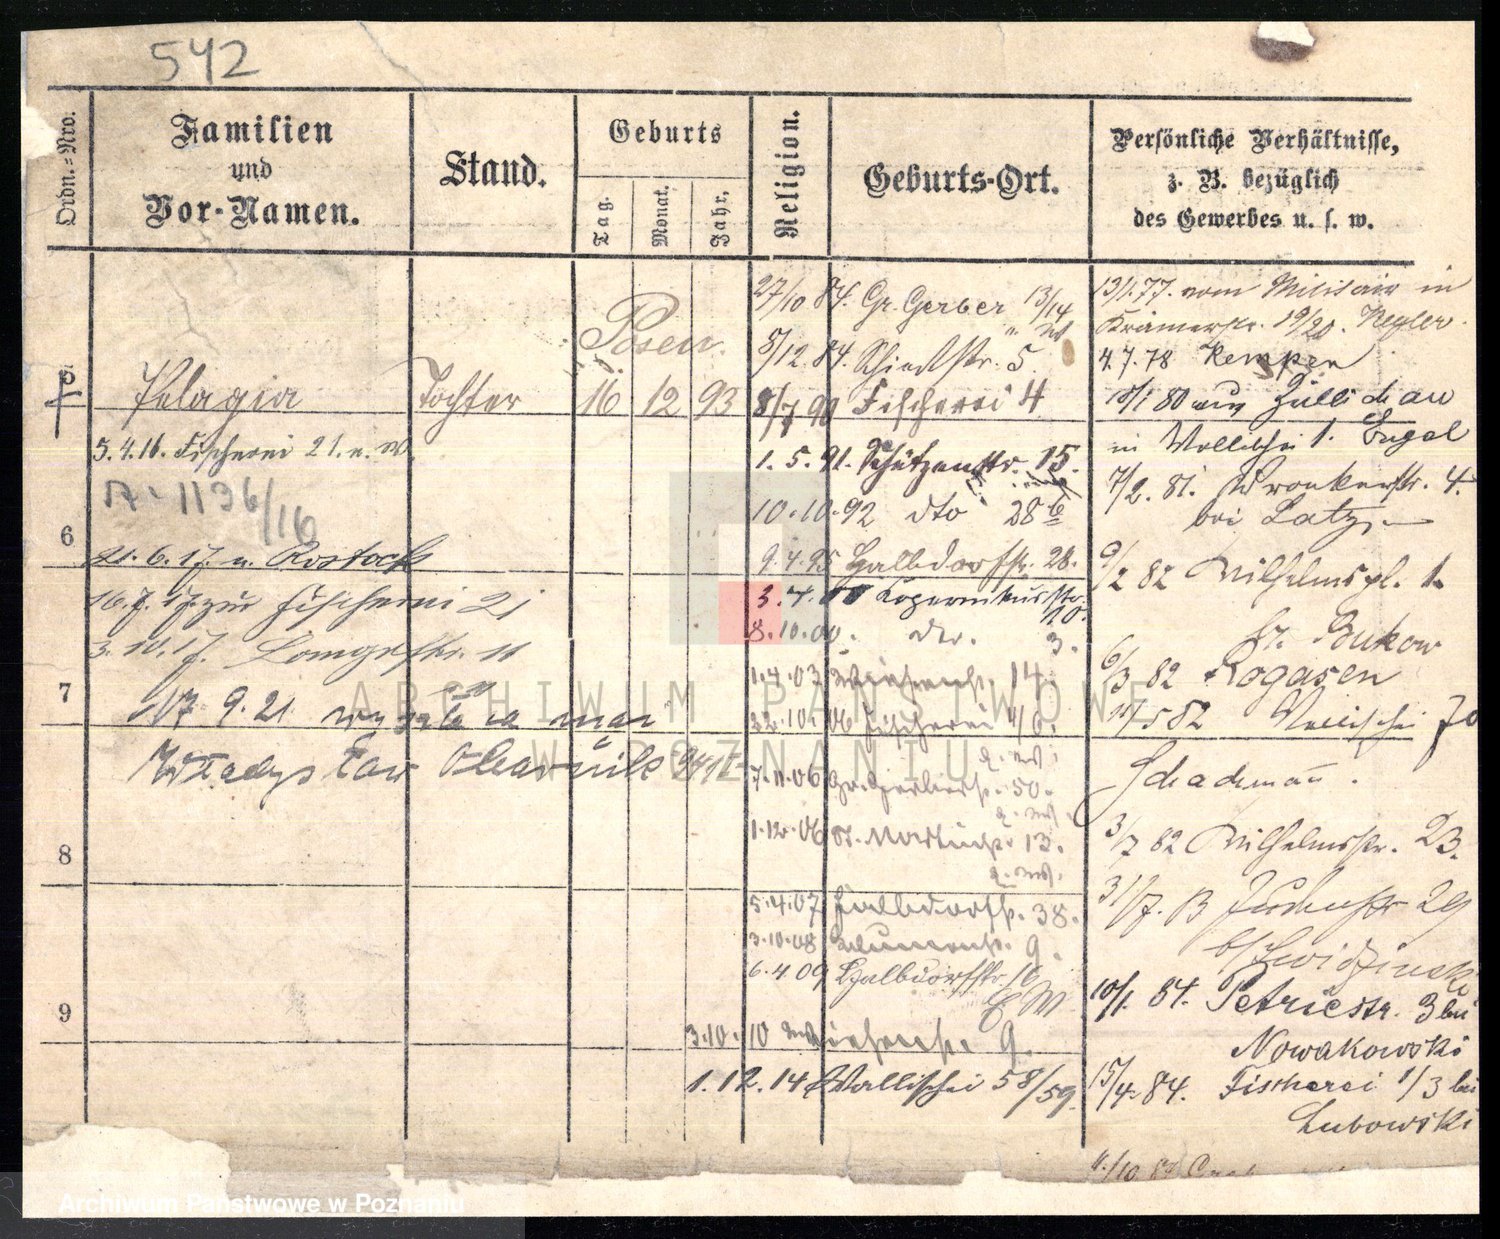 542
Ordn.=Nro.
Familien
und
Vor-Namen.
Stand.
Geburts
Tag.
Monat.
Jahr.
Religion.
Geburts-Ort.
Persönliche Verhältnisse,
z. B. bezüglich
des Gewerbes u. s. w.
Posen
5
Pelagia Tochter 16 12 93
5.4.16. Fischerei 21.
1136/16
6
21.6.17. n. Rostock
16.7.17. zur Fischerei 21
3.10.17. Langestr. 11
7
17 9.21
Władysław
8
9
27/10 84. Gr. Gerber 13/14
8/12.84. Schießstr. 5
8/7 90 Fischerei 4
1.5.91. Schützenstr. 15.
10.10.92 dto 28b
9.4.95 Halbdorfstr. 28.
3.7.00 Kopernikusstr. 10.
8.10.00. 3.
1.4.03 Wiesenstr. 14.
22.10.06 Fischerei 4/6.
7.11.06 Gr. Gerberstr. 50.
1.12.06 St. Martinstr. 13.
5.4.07 Halbdorfstr. 38.
3.10.08 Blumenstr. 9.
6.4.09 Halbdorfstr. 16
3.10.10 Wiesenstr. 9.
1.12.14 Wallischei 58/59.
13/1.77. vom Militair in
Krämerstr. 19/20.
4.7.78 Kempen
8/1 80 aus Züllichau
in Wallischei 1. Engel
7/2.81. Wronkerstr. 4.
bei Latz
9/2 82 Wilhelmspl. 1.
Bukow
6/3 82 Rogasen
582 Wallischei 70
Schachmann.
3/7 82 Wilhelmsstr. 23.
31/7. 83 Judenstr 29
10/1. 84. Petriestr. 3 bei
Nowakowski
15/4. 84. Fischerei 1/3 bei
Lubowski
ARCHIWUM PAŃSTWOWE
W POZNANIU
Archiwum Państwowe w Poznaniu